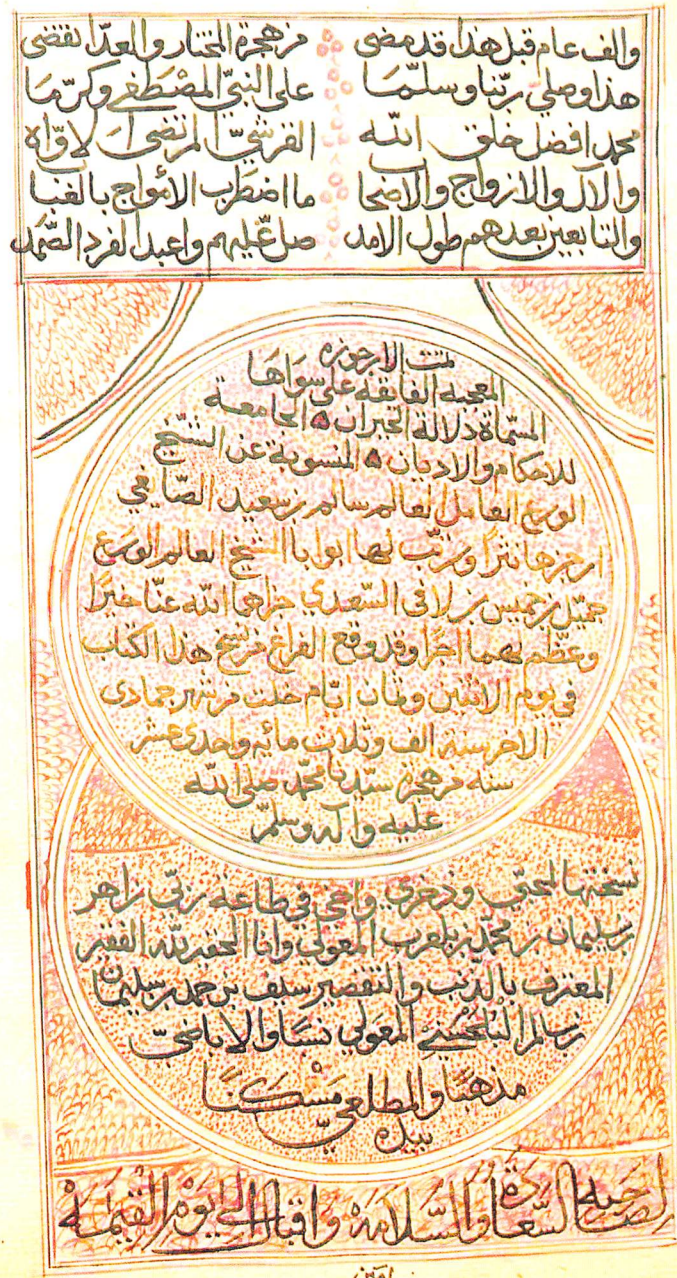 والف عام قبل هذا قد مضى من هجرة المختار والعد انقضى
هذا وصلى ربنا وسلما على النبي المصطفى وكرما
محمد افضل خلق الله القرشي المرتضى الاواه
والآل والازواج والاصحاب ما اضطرب الأمواج بالغباب
والتابعين بعدهم طول الامد صل عليهم واعبد الفرد الصمد
تمت الارجوزه
المعجبه الفايقه على سواها
المسماة دلالة الحيران الجامعة
للاحكام والاديان المنسوبة عن الشيخ
الورع العامل العالم سالم بن سعيد الصايغي
ارجزها نثرا ورتب لها ابوابا الشيخ العالم الورع
جميل بن خميس بن لافي السعدي جزاهما الله عنا خيرا
وعظم لهما اجرا وقد وقع الفراغ من نسخ هذا الكتاب
في يوم الاثنين وثمان ايام خلت من شهر جمادى
الاخر سنة الف وثلاث مائه واحدى عشر
سنه من هجرة سيدنا محمد صلى الله
عليه وآله وسلم
نسختها لمحبي وذخري واخي في طاعة ربي زاهر
بن سليمان بن محمد بن بلعرب المعولي وانا الحقير لله الفقير
المعترف بالذنب والتقصير سيف بن حمد بن سليمان
بن سالم البلحسني المعولي نسبا والاباضي
مذهبا والمطلعي مسكنا
بيده
لصاحبه السعادة والسلامة واقبال الى يوم القيمة
امين